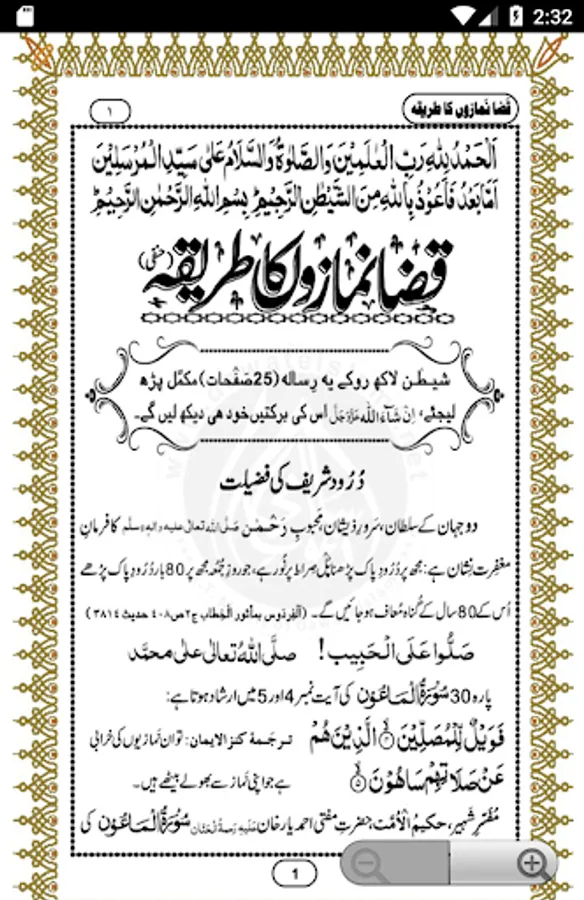 2:32
قضا نمازوں کا طریقہ
۱
اَلْحَمْدُ لِلّٰہِ رَبِّ الْعٰلَمِیْنَ وَالصَّلٰوۃُ وَالسَّلَامُ عَلٰی سَیِّدِ الْمُرْسَلِیْنَ
اَمَّا بَعْدُ فَاَعُوْذُ بِاللّٰہِ مِنَ الشَّیْطٰنِ الرَّجِیْمِ بِسْمِ اللّٰہِ الرَّحْمٰنِ الرَّحِیْمِ
قضا نمازوں کا طریقہ (حنفی)
شیطٰن لاکھ روکے یہ رِسالہ (25صَفْحات) مکمَّل پڑھ
لیجئے، اِنْ شَآءَ اللّٰہ عَزَّوَجَلَّ اس کی برکتیں خود ہی دیکھ لیں گے۔
دُرُود شریف کی فضیلت
دو جہان کے سلطان، سَرورِ ذیشان، محبوبِ رَحْمٰن صَلَّی اللہُ تعالٰی علیہ واٰلہٖ وسلَّم کا فرمانِ
مغفِرت نِشان ہے: مجھ پر دُرُودِ پاک پڑھنا پُلْ صِراط پر نُور ہے، جو روزِ جُمُعہ مجھ پر 80 بار دُرُودِ پاک پڑھے
اُس کے 80 سال کے گُناہ مُعاف ہو جائیں گے۔ (اَلْفِرْدَوْس بمأثور الْخِطاب ج۲ ص۴۰۸ حدیث ۳۸۱۴)
صَلُّوْا عَلَی الْحَبِیب! صلَّی اللّٰہُ تعالٰی علٰی محمَّد
پارہ 30 سُوْرَۃُ الْمَاعُوْن کی آیت نمبر 4 اور 5 میں ارشاد ہوتا ہے:
فَوَیْلٌ لِّلْمُصَلِّیْنَ ۙ الَّذِیْنَ ہُمْ ترجَمۂ کنزالایمان: تو ان نَمازیوں کی خرابی
عَنْ صَلَاتِہِمْ سَاہُوْنَ ۙ ہے جو اپنی نَماز سے بھولے بیٹھے ہیں۔
مُفَسّرِ شَہیر، حکیمُ الْاُمَّت، حضرتِ مفتی احمد یار خان عَلَیْہِ رَحْمَۃُ الْحَنَّان سُوْرَۃُ الْمَاعُوْن کی
1